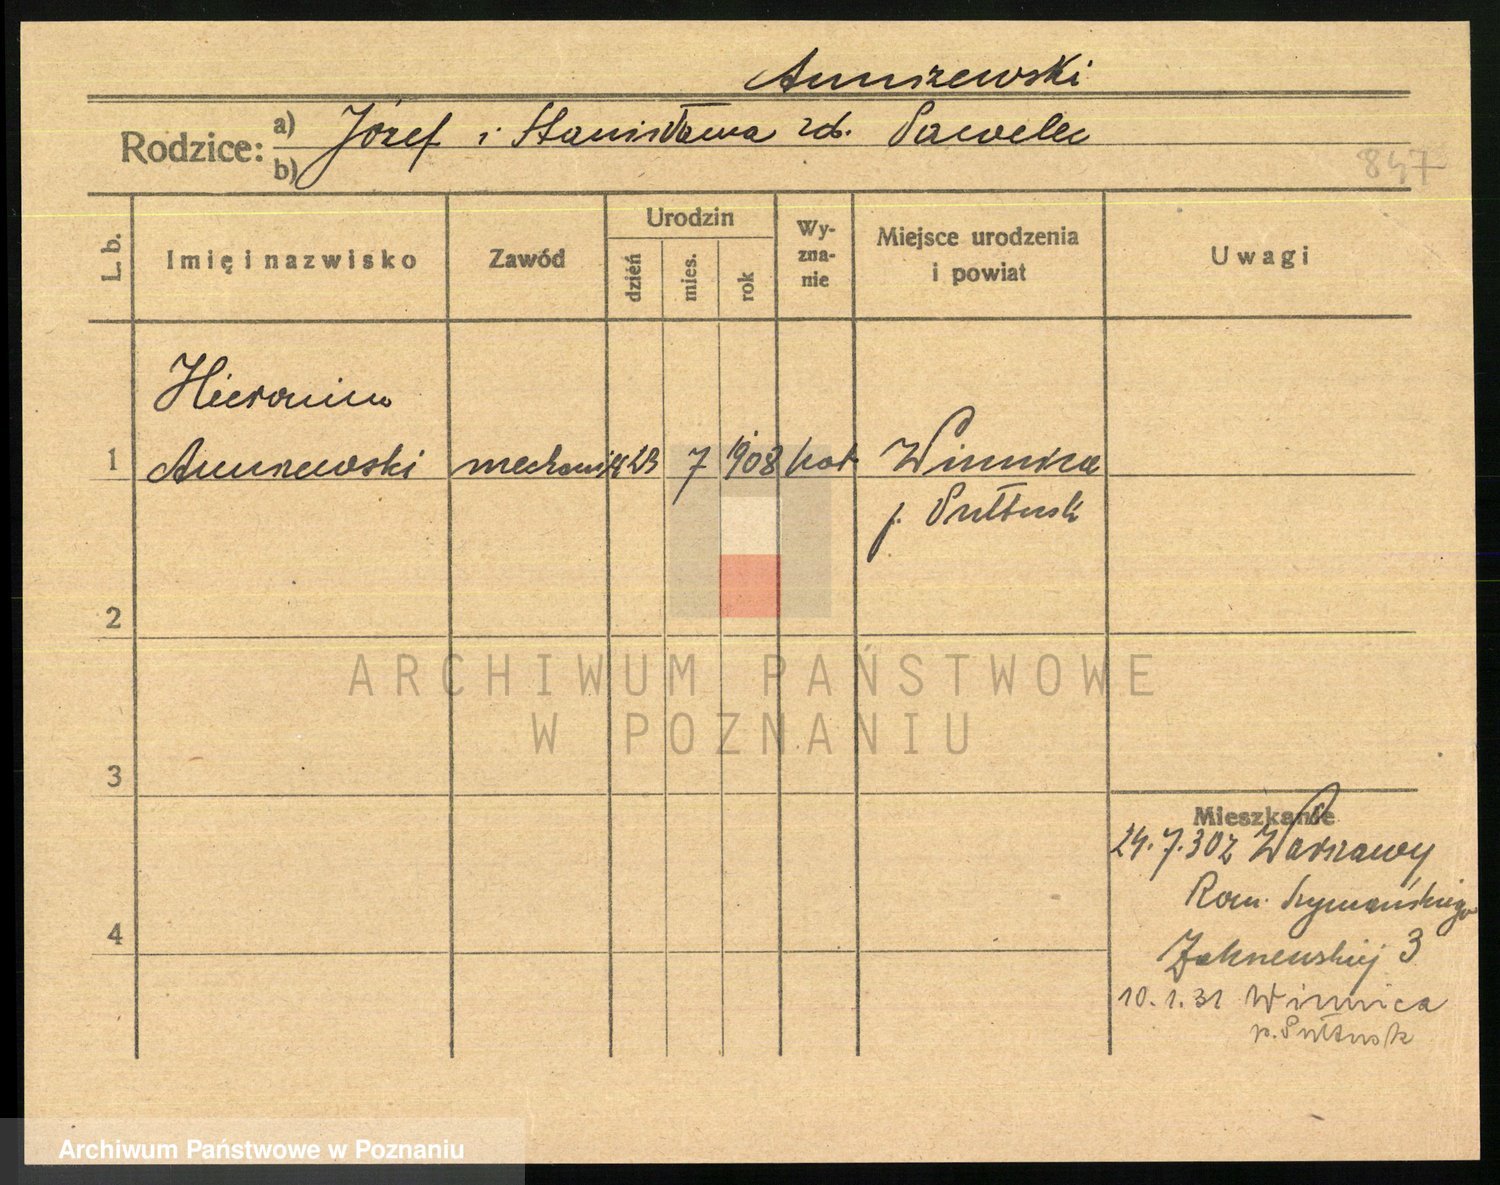 Anuszewski
Rodzice: a) b) Józef i Stanisława zd. Pawelec
847
L. b. Imię i nazwisko Zawód Urodzin dzień mies. rok Wy-zna-nie Miejsce urodzenia i powiat Uwagi
Hieronim
1 Anuszewski mechanik 23 7 1908 kat Winnica
p. Pułtusk
2
ARCHIWUM PAŃSTWOWE
W POZNANIU
3
Mieszkanie
24.7.30 z Warszawy
Rom. Szymańskiego
3
4
10.1.31 Winnica
p. Pułtusk
Archiwum Państwowe w Poznaniu